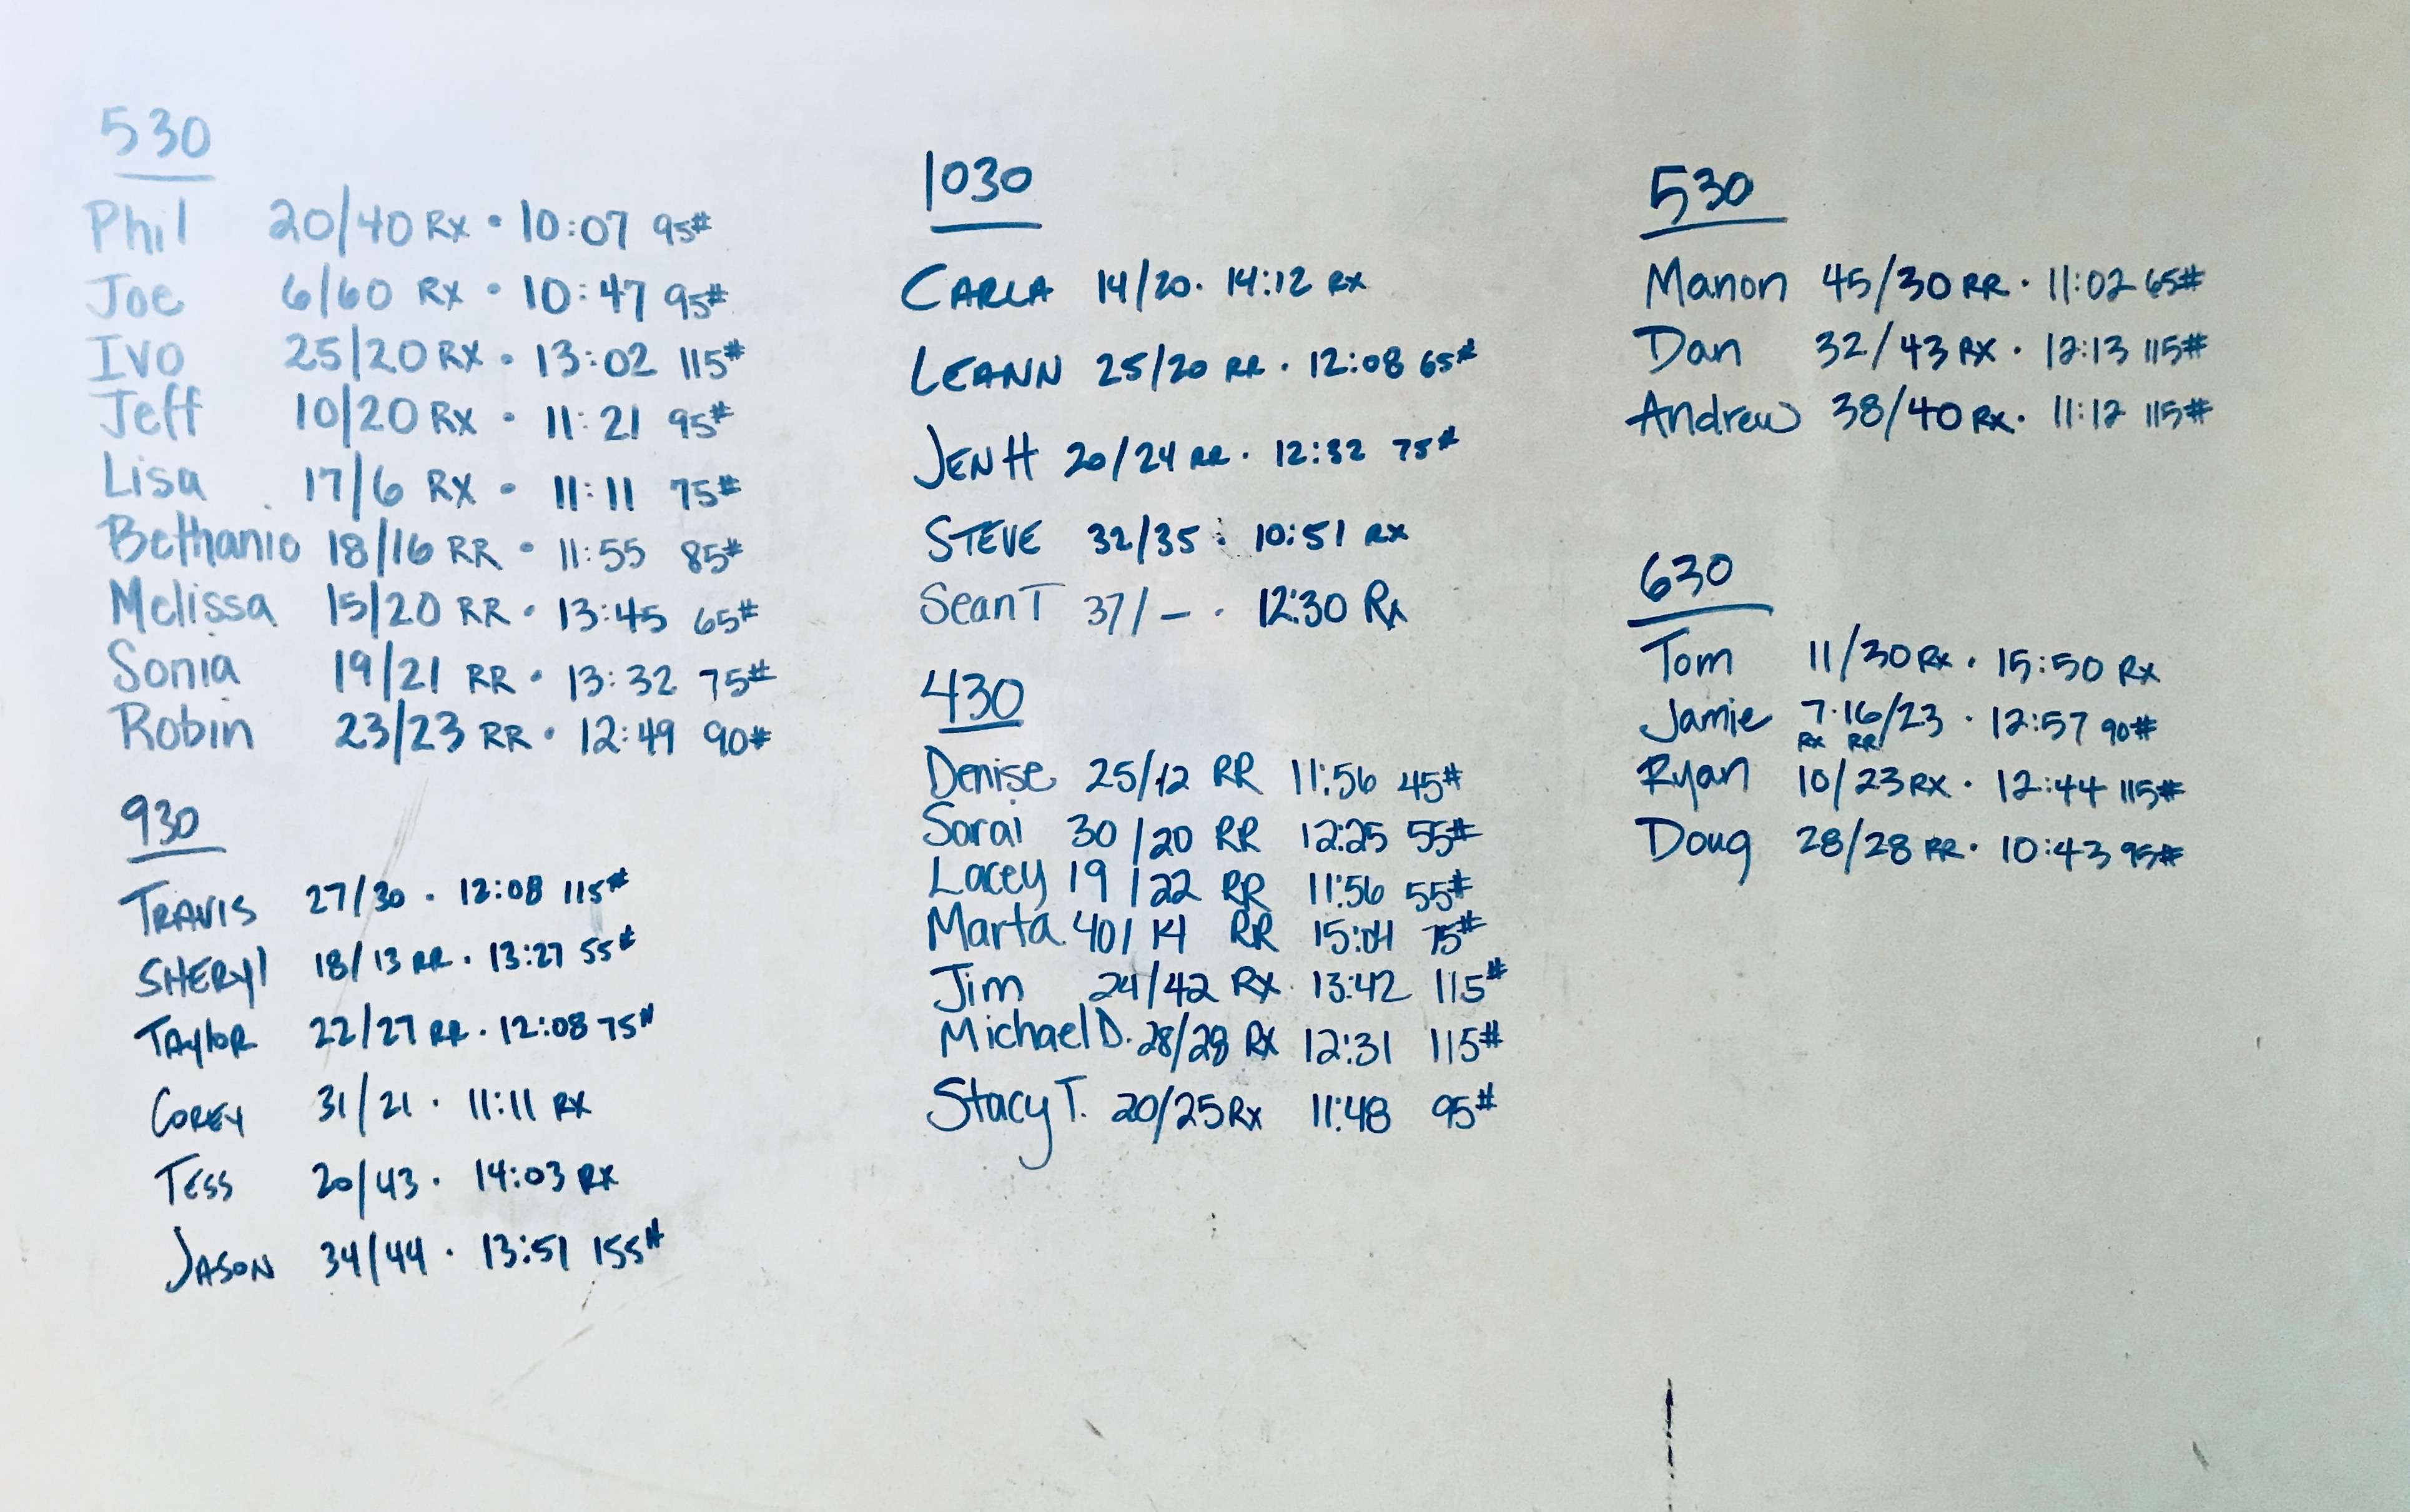 530
Phil 20/40 Rx • 10:07 95#
Joe 6/60 Rx • 10:47 95#
Ivo 25/20 RX • 13:02 115#
Jeff 10/20 Rx • 11:21 95#
Lisa 17/6 RX • 11:11 75#
Bethanie 18/16 RR • 11:55 85#
Melissa 15/20 RR • 13:45 65#
Sonia 19/21 RR • 13:32 75#
Robin 23/23 RR • 12:49 90#
930
TRAVIS 27/30 • 12:08 115#
SHERYl 18/13 RR • 13:27 55#
TAylOR 22/27 RR • 12:08 75#
COREY 31/21 • 11:11 RX
TESS 20/43 • 14:03 RX
JASON 34/44 • 13:51 155#
1030
CARLA 14/20 • 14:12 RX
LEANN 25/20 RR • 12:08 65#
JEN H 20/24 RR • 12:32 75#
STEVE 32/35 • 10:51 RX
Sean T 37/– • 12:30 Rx
430
Denise 25/12 RR 11:56 45#
Sarai 30/20 RR 12:25 55#
Lacey 19/22 RR 11:56 55#
Marta 40/14 RR 15:04 75#
Jim 24/42 RX 13:42 115#
Michael D. 28/28 RX 12:31 115#
Stacy T. 20/25 Rx 11:48 95#
530
Manon 45/30 RR • 11:02 65#
Dan 32/43 RX • 12:13 115#
Andrew 38/40 Rx • 11:12 115#
630
Tom 11/30 Rx • 15:50 Rx
Jamie 7•16/23 • 12:57 90#
Rx RR
Ryan 10/23 RX • 12:44 115#
Doug 28/28 RR • 10:43 95#